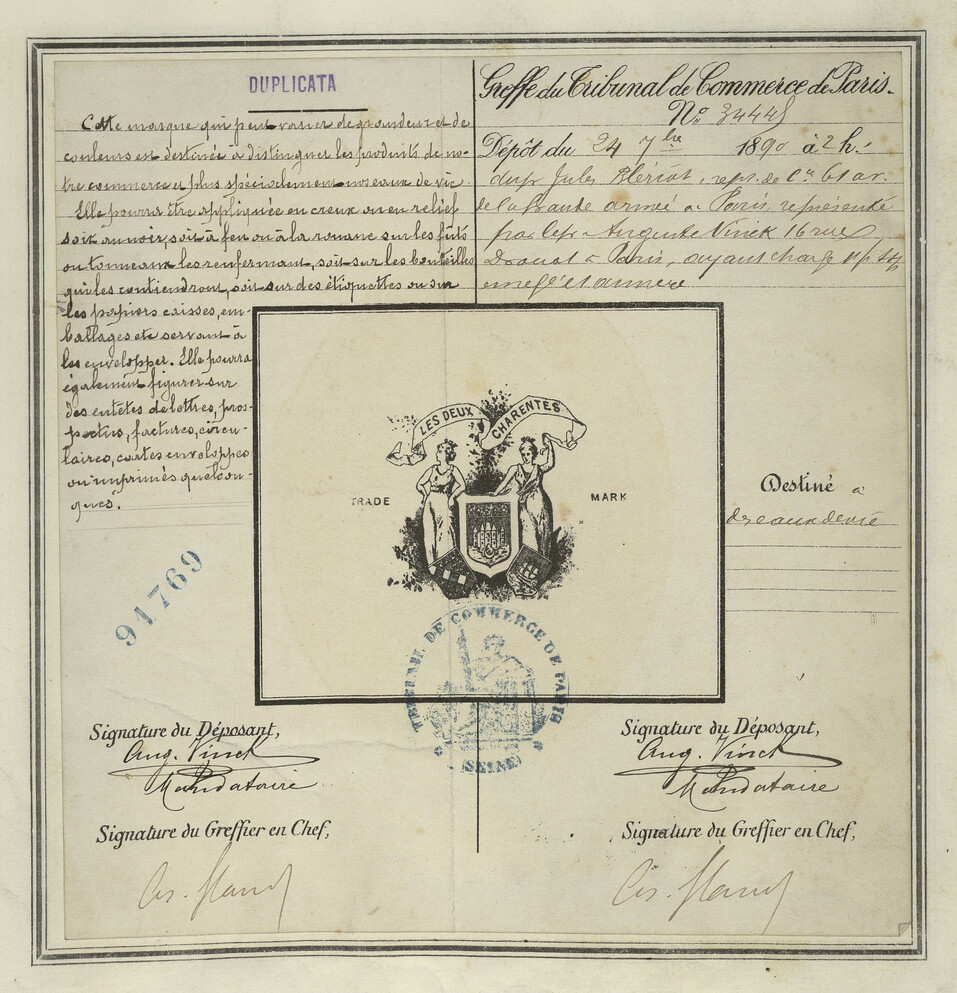 DUPLICATA
Cette marque qui peut varier de grandeur et de
couleurs est destinée à distinguer les produits de no-
tre commerce et plus spécialement nos eaux de vie
Elle pourra être appliquée en creux ou en relief
soit au noir, soit à feu ou à la rouane sur les fûts
ou tonneaux les renfermant, soit sur les bouteilles
qui les contiendront, soit sur des étiquettes ou sur
les papiers caisses, em-
ballages etc servant à
les envelopper. Elle pourra
également figurer sur
des entêtes de lettres, pros-
pectus, factures, circu-
laires, cartes enveloppes
ou imprimés quelcon-
ques.
Greffe du Tribunal de Commerce de Paris.
No 34445
Dépôt du 24 7bre 1890 à 2 h.
du sr Jules Blériot, repr. de Cie 61 av.
de la Grande armée à Paris, représenté
par le sr Auguste Vinck 16 rue
Drouot à Paris, ayant charge
LES DEUX CHARENTES
TRADE MARK
Destiné à
des eaux de vie
91769
TRIBUNAL DE COMMERCE DE PARIS
(SEINE)
Signature du Déposant,
Aug. Vinck
Mandataire
Signature du Greffier en Chef,
Signature du Déposant,
Aug. Vinck
Mandataire
Signature du Greffier en Chef,